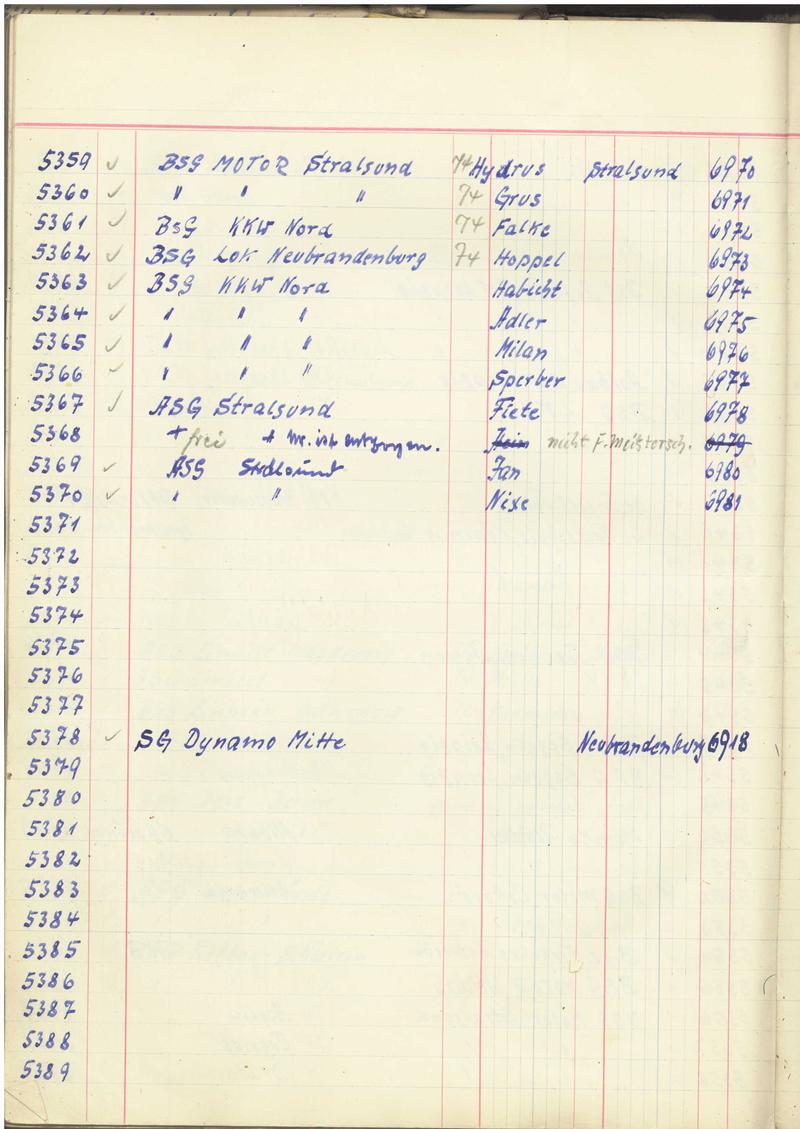 5359 ✓ BSG MOTOR Stralsund 74 Hydrus Stralsund 6970
5360 ✓ " " " 74 Grus 6971
5361 ✓ BSG KKW Nord 74 Falke 6972
5362 ✓ BSG Lok Neubrandenburg 74 Hoppel 6973
5363 ✓ BSG KKW Nord Habicht 6974
5364 ✓ " " " Adler 6975
5365 ✓ " " " Milan 6976
5366 ✓ " " " Sperber 6977
5367 ✓ ASG Stralsund Fiete 6978
5368 + frei + Nr. ist entzogen. Hein nicht f. Meistersch. 6979
5369 ✓ ASG Stralsund Fan 6980
5370 ✓ " " Nixe 6981
5371
5372
5373
5374
5375
5376
5377
5378 ✓ SG Dynamo Mitte Neubrandenburg 6918
5379
5380
5381
5382
5383
5384
5385
5386
5387
5388
5389